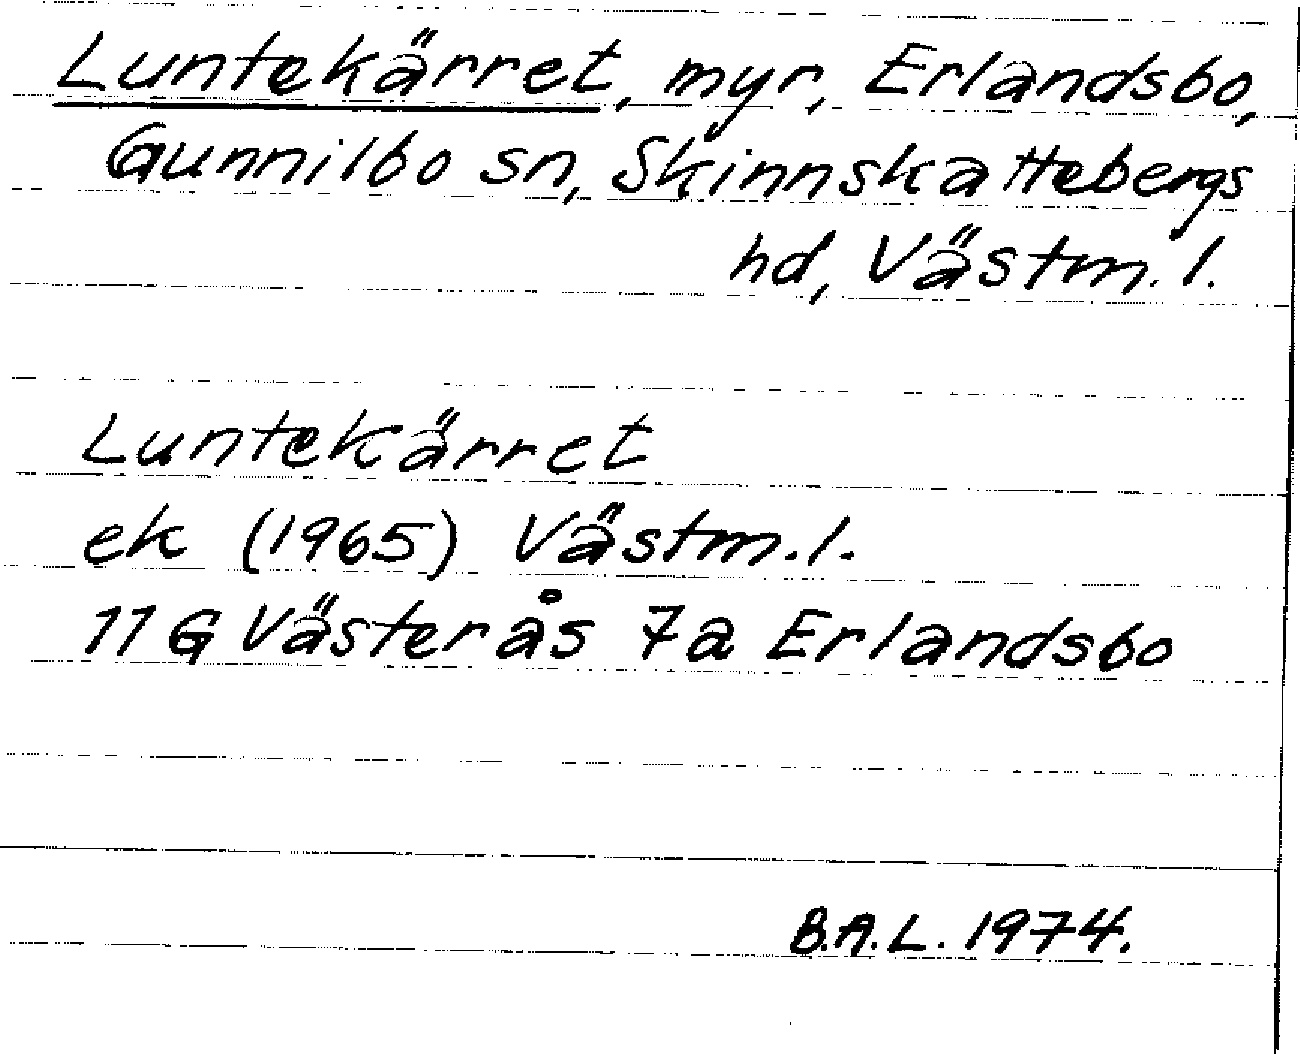 Luntekärret, myr, Erlandsbo,
Gunnilbo sn, Skinnskattebergs
hd, Västm. l.
Luntekärret
ek (1965) Västm. l.
11 G Västerås 7a Erlandsbo
B.A.L. 1974.